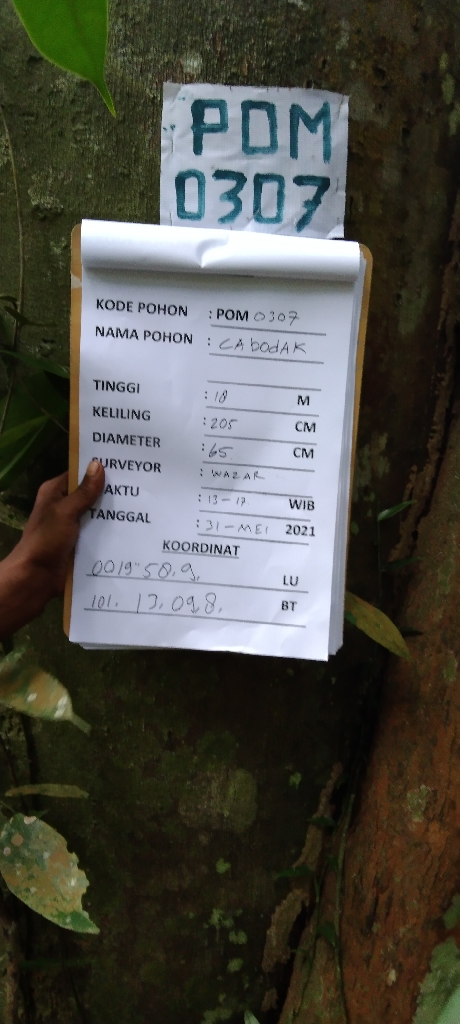 POM
0307
KODE POHON : POM 0307
NAMA POHON : CABODAK
TINGGI : 18 M
KELILING : 205 CM
DIAMETER : 65 CM
SURVEYOR : WAZAR
WAKTU : 13-17 WIB
TANGGAL : 31-MEI 2021
KOORDINAT
0019-58.9. LU
101. 13.098. BT